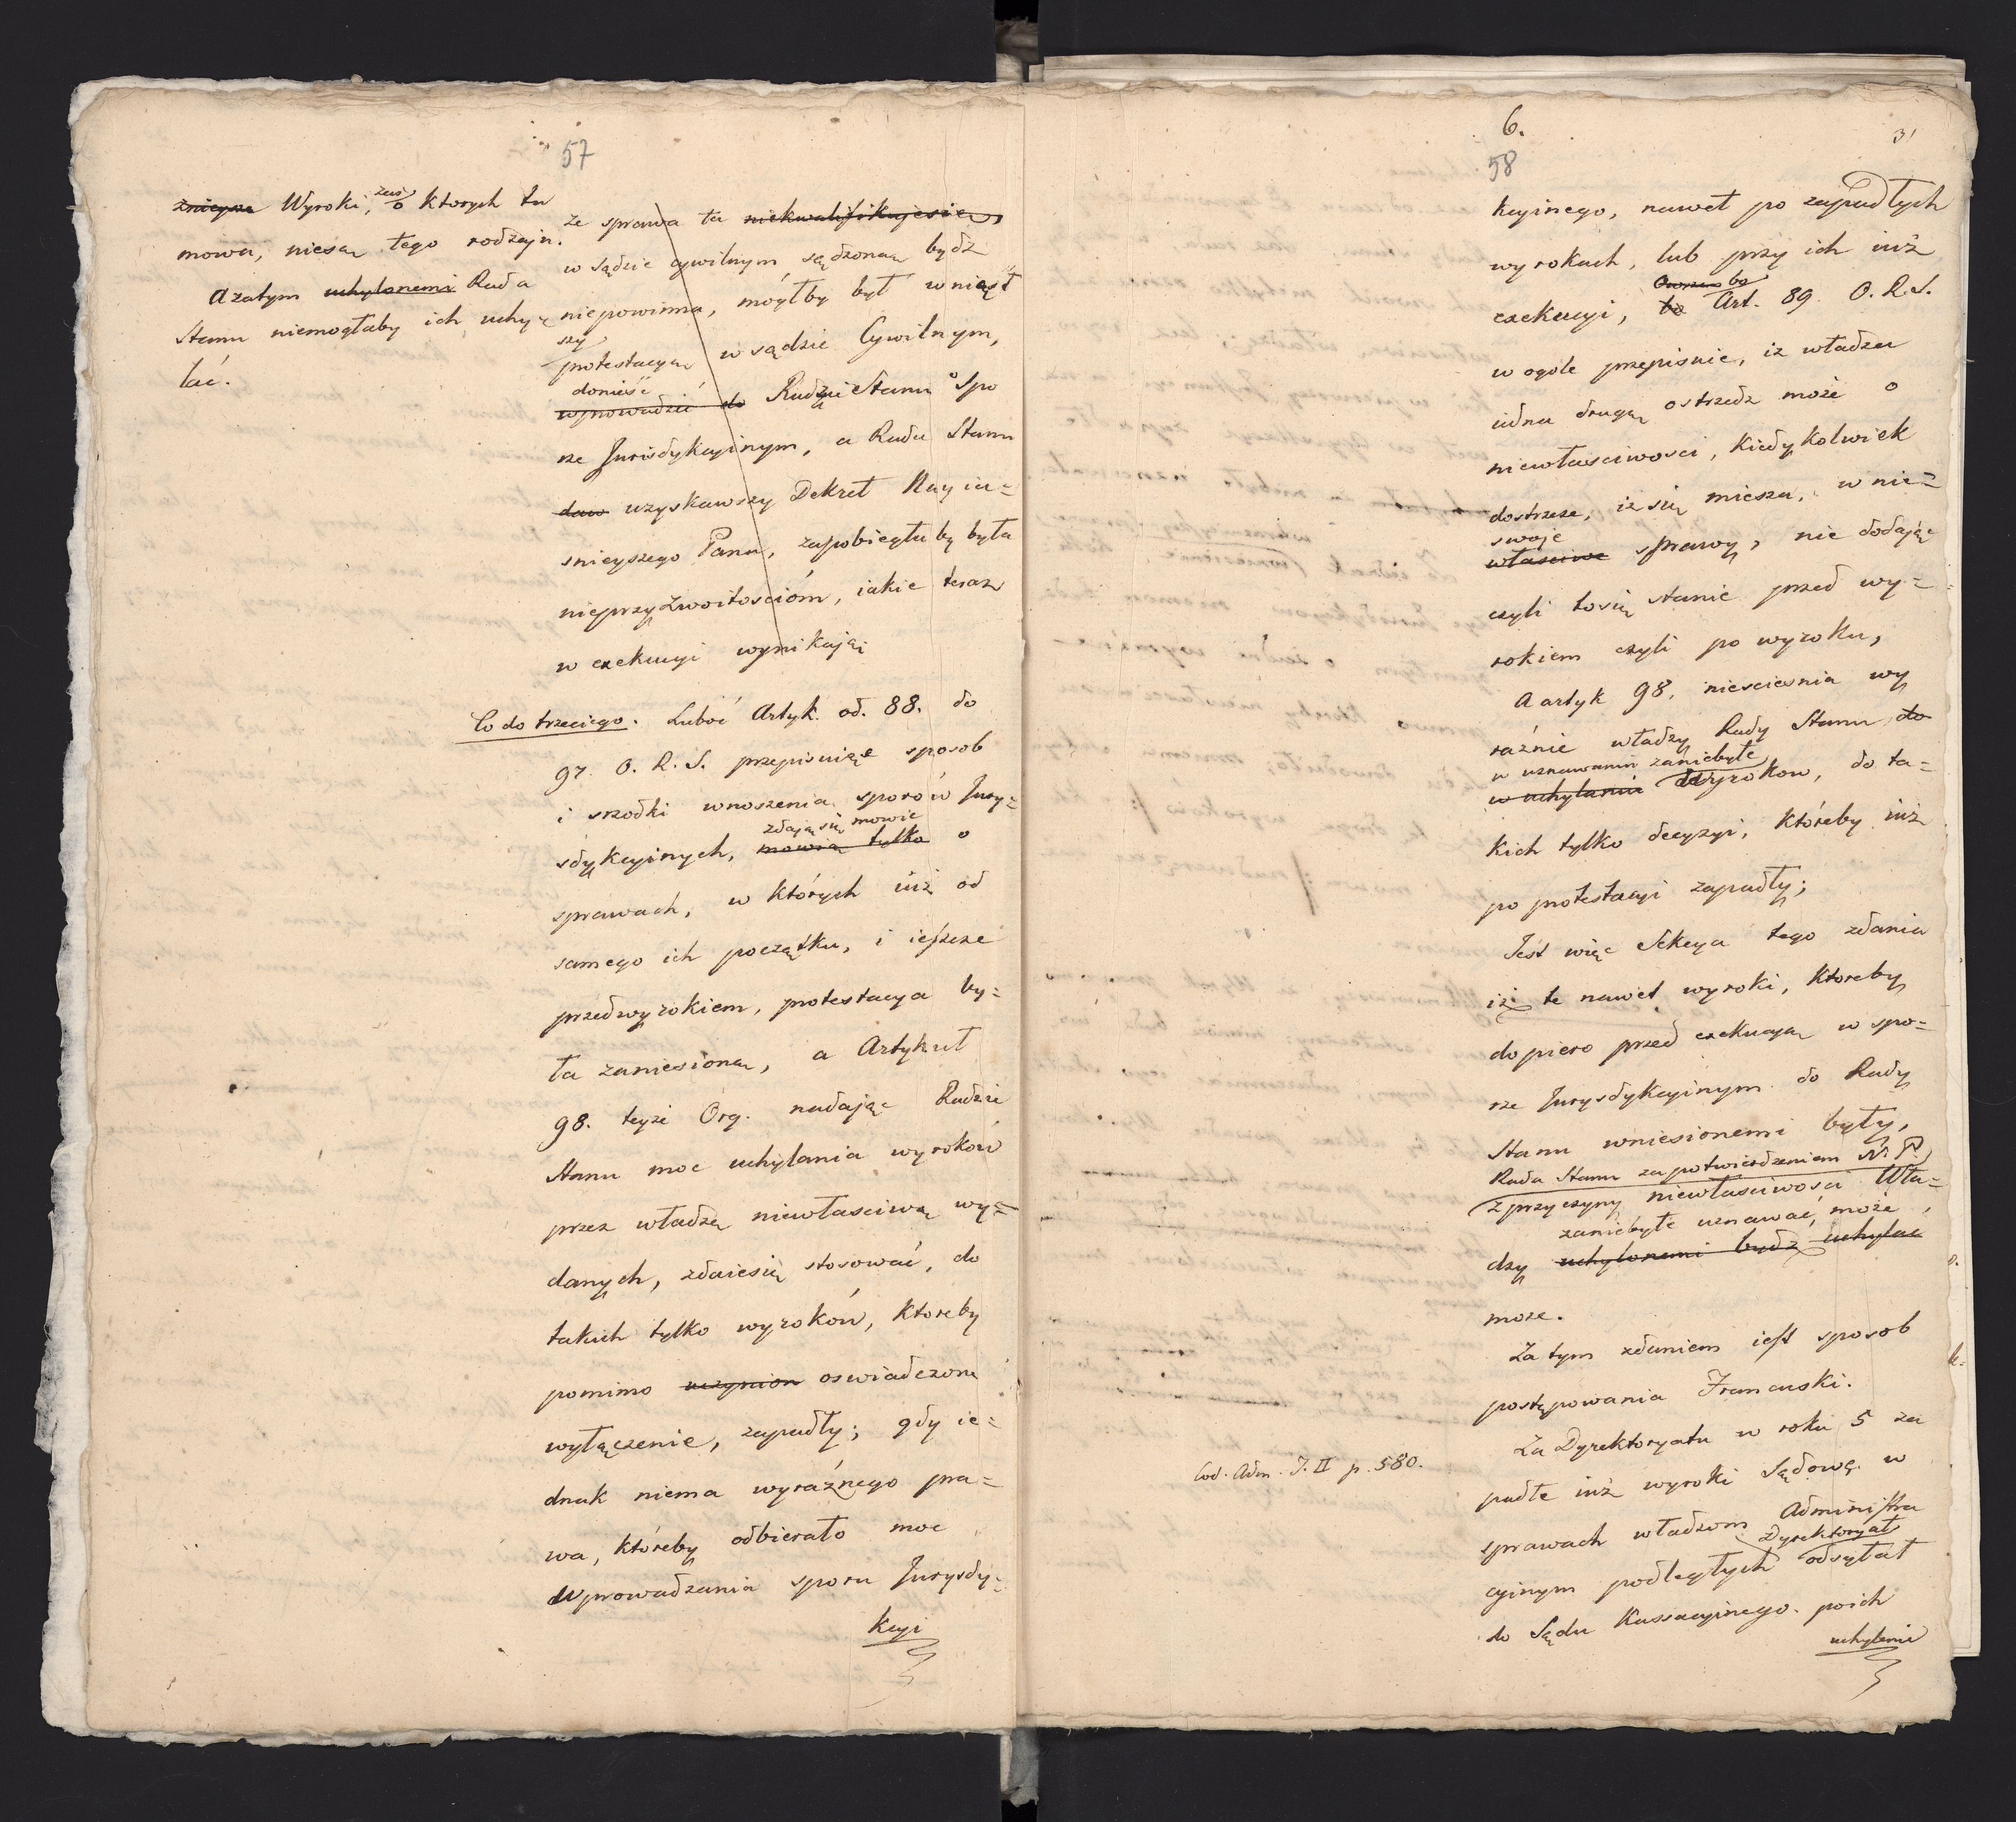 57
żnieysze Wyroki, zaś o ktorych tu
mowa, niesą tego rodzaju.
Azatym uchylonemi Rada
Stanu niemogłaby ich uchy=
lać.
że sprawa ta niekwalifikuiesię
w sądzie cywilnym sądzoną bydz
niepowinna, mogłby był wniosł
szy
protestacyą w sądzie Cywilnym,
donieść
wprowadzić do Radzie Stanu o Spo
rze Jurisdykcyinym, a Rada Stanu
daw uzyskawszy Dekret Nayia=
snieyszego Pana, zapobiegłaby była
nieprzyzwoitościóm, iakie teraz
w exekucyi wynikaią
Co do trzeciego. Luboć Artyk. od. 88. do
97. O. R. S. przepisuiąc sposob
i srzodki wnoszenia sporów Jury=
zdaią się mowic
sdykcyinych, mowią tylko o
sprawach, w których iuż od
samego ich początku, i ieszcze
przedwyrokiem, protestacya by=
ła zaniesioną, a Artykuł
98. teyże Org. nadaiąc Radzie
Stanu moc uchylania wyroków
przez władzą niewłasciwą wy=
danych, zdaiesię stosować, do
takich tylko wyroków, ktoreby
pomimo uczynion oswiadczone
wyłączenie, zapadły; gdy ie=
dnak niema wyraźnego pra=
wa, któreby odbierało moc
Wprowadzania sporu Jurysdy=
kcyi
6.
58
31
kcyinego, nawet po zapadłych
wyrokach, lub przy ich iuż
Owszem bo
exekucyi, bo Art. 89. O. R. S.
w ogole przepisuie, iż władza
iedna drugą ostrzedz może o
niewłasciwosci, kiedykolwiek
dostrzeże, iż się miesza, w nie=
swoje
własciwe sprawy, nie dodaiąc
czyli tosię stanie przed wy=
rokiem czyli po wyroku,
A artyk 98. niesciesnia wy
raźnie władzy Rady Stanu do
w uznawaniu zaniebyłe
w uchylaniu Wyrokow, do ta=
kich tylko decyzyi, któreby iuż
po protestacyi zapadły;
Jest więc Sekcya tego zdania
iż te nawet wyroki, ktoreby
dopiero przed exekucyą w spo=
rze Jurysdykcyinym do Rady
Stanu wniesionemi były,
Rada Stanu za potwierdzeniem N. P.
z przyczyny niewłasciwosci Wła=
zaniebyłe uznawać, może,
dzy uchylonemi bydz uchylac
może.
Za tym zdaniem iest sposob
postępowania Francuski.
Za Dyrektoryatu w roku 5 za
padłe iuż wyroki Sądową w
sprawach władzom Administra
Dyrektoryat
cyinym podległych odsyłał
do Sądu Kassacyinego. po ich
uchylenie
Cod. Adm. T. II p. 580.